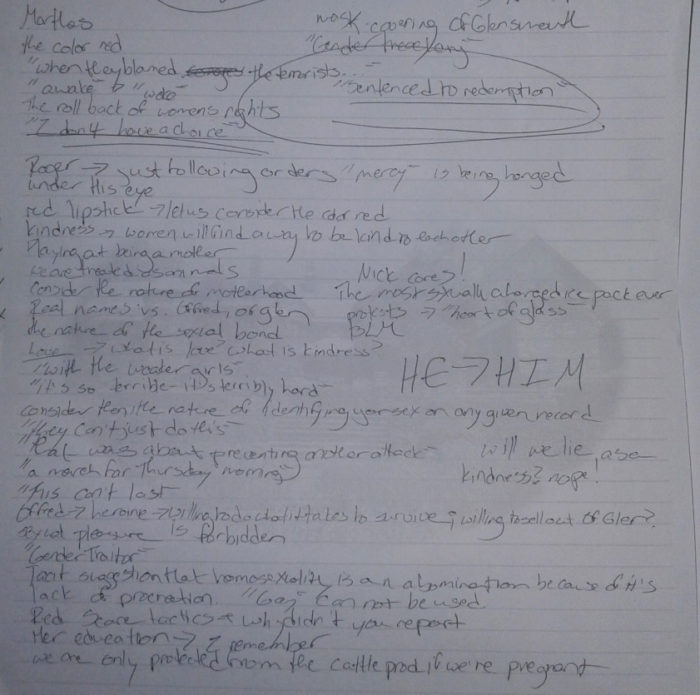 Marthas
mask covering OfGlens mouth
the color red
"Gender treachery"
"when they blamed the terrorists..."
"awake" → "woke"
"sentenced to redemption"
The roll back of womens rights
"I don't have a choice"
Roger → just following orders "mercy" is being hanged
under His eye
red lipstick → let us consider the color red
kindness → women will find a way to be kind to each other
Playing at being a mother
we are treated as animals
Nick cares!
Consider the nature of motherhood
The most sexually charged ice pack ever
Real names vs. Offred, ofglen
protests → "heart of glass"
the nature of the sexual bond
BLM
Love → what is love? what is kindness?
"with the weaker girls"
HE → HIM
"it's so terrible - it's terribly hard"
consider then the nature of identifying your sex on any given record
"they can't just do this"
that was about preventing another attack
will we lie, as a
kindness? nope!
"a march for Thursday morning"
"this can't last"
Offred → heroine → willing to do what it takes to survive; willing to sell out OfGlen?
sexual pleasure is forbidden
"Gender Traitor"
Tacit suggestion that homosexuality is an abomination because of it's
lack of procreation. "Gay" can not be used
Red Scare tactics + why didn't you report
Her education → I remember
we are only protected from the cattle prod if we're pregnant